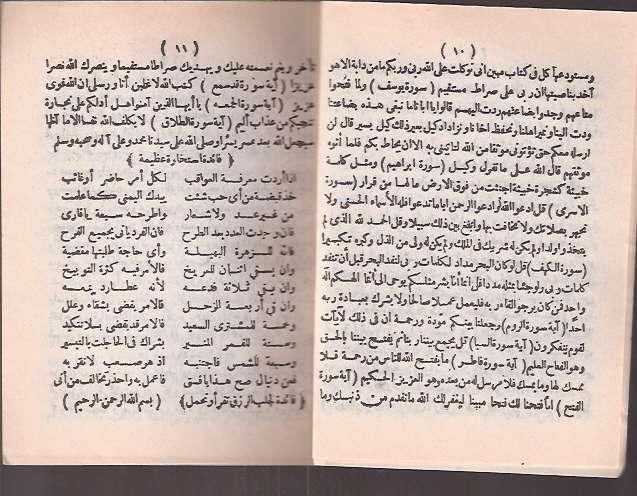 ( ١٠ )
ومستودعها كل فى كتاب مبين انى توكلت على الله ربى وربكم مامن دابة الا هو
آخذ بناصيتها ان ربى على صراط مستقيم ( سورة يوسف ) ولما فتحوا
متاعهم وجدوا بضاعتهم ردت اليهم قالوا يا ابانا ما نبغى هذه بضاعتنا
ردت الينا ونمير اهلنا ونحفظ اخانا ونزداد كيل بعير ذلك كيل يسير قال لن
ارسله معكم حتى تؤتونى موثقا من الله لتاتننى به الا ان يحاط بكم فلما أتوه
موثقهم قال الله على ما نقول وكيل ( سورة ابراهيم ) ومثل كلمة
خبيثة كشجرة خبيثة اجتثت من فوق الارض مالها من قرار ( سورة
الاسرى ) قل ادعوا الله أو ادعوا الرحمن اياما تدعوا فله الأسماء الحسنى ولا
تجهر بصلاتك ولا تخافت بها وابتغ بين ذلك سبيلا وقل الحمد لله الذى لم
يتخذ ولدا ولم يكن له شريك فى الملك ولم يكن له ولى من الذل وكبره تكبيرا
( سورة الكهف ) قل لو كان البحر مدادا لكلمات ربى لنفد البحر قبل أن تنفد
كلمات ربى ولو جئنا بمثله مددا قل انما أنا بشر مثلكم يوحى الى أنما الهكم اله
واحد فمن كان يرجو القاء ربه فليعمل عملا صالحا ولا يشرك بعبادة ربه
احدا ( آية سورة الروم ) وجعل بينكم مودة ورحمة ان فى ذلك لآيات
لقوم يتفكرون ( آية سورة السبا ) قل يجمع بيننا ربنا ثم يفتح بيننا بالحق
وهو الفتاح العليم ( آية سورة فاطر ) ما يفتح الله للناس من رحمة فلا
ممسك لها وما يمسك فلا مرسل له من بعده وهو العزيز الحكيم ( آية سورة
الفتح ) انا فتحنا لك فتحا مبينا ليغفر لك الله ما تقدم من ذنبك وما
( ١١ )
تأخر ويتم نعمته عليك ويهديك صراطا مستقيما وينصرك الله نصرا
عزيزا ( آية سورة قد سمع ) كتب الله لاغلبن أنا ورسلى ان الله قوى
عزيز ( آية سورة الجمعه ) يا أيها الذين آمنوا هل أدلكم على تجارة
تنجيكم من عذاب أليم ( آية سورة الطلاق ) لا يكلف الله نفسا الا ما آتاها
سيجعل الله بعد عسر يسرا وصلى الله على سيدنا محمد وعلى آله وصحبه وسلم
( فائدة استخارة عظيمة )
اذا أردت معرفة العواقب لكل أمر حاضر أو غائب
خذ قبضة من أى حب شئت بيدك اليمنى كما علمت
من غير عد ولا شعار واطرحه سبعة يا قارى
فان وجدت العدد بعد الطرح فان الفرد يأتى بجميع الفرح
فانه للزهرة البهيلة وأى حاجة طلبتها مقضية
وان بقى اثنان للمريخ فالأمر فيه كثرة التوبيخ
وان بقى ثلاثة فدعه لأنه عطارد يمنعه
وان بقى أربعة الزحل فالامر يقضى بشقاء وعلل
وخمسة للمشترى السعيد فالامر قد يقضى بلا تنكيد
وستة للقمر المنير بشراك فى الحاجات بالتيسير
وسبعة للشمس فاجتنبه اذ هو صعب لا تقربه
فعن دنيال صح هذا يا فتى فاعمل به واحذر تخالف من أتى
( فائدة لجلب الرزق تقرأ وتحمل ) ( بسم الله الرحمن الرحيم )